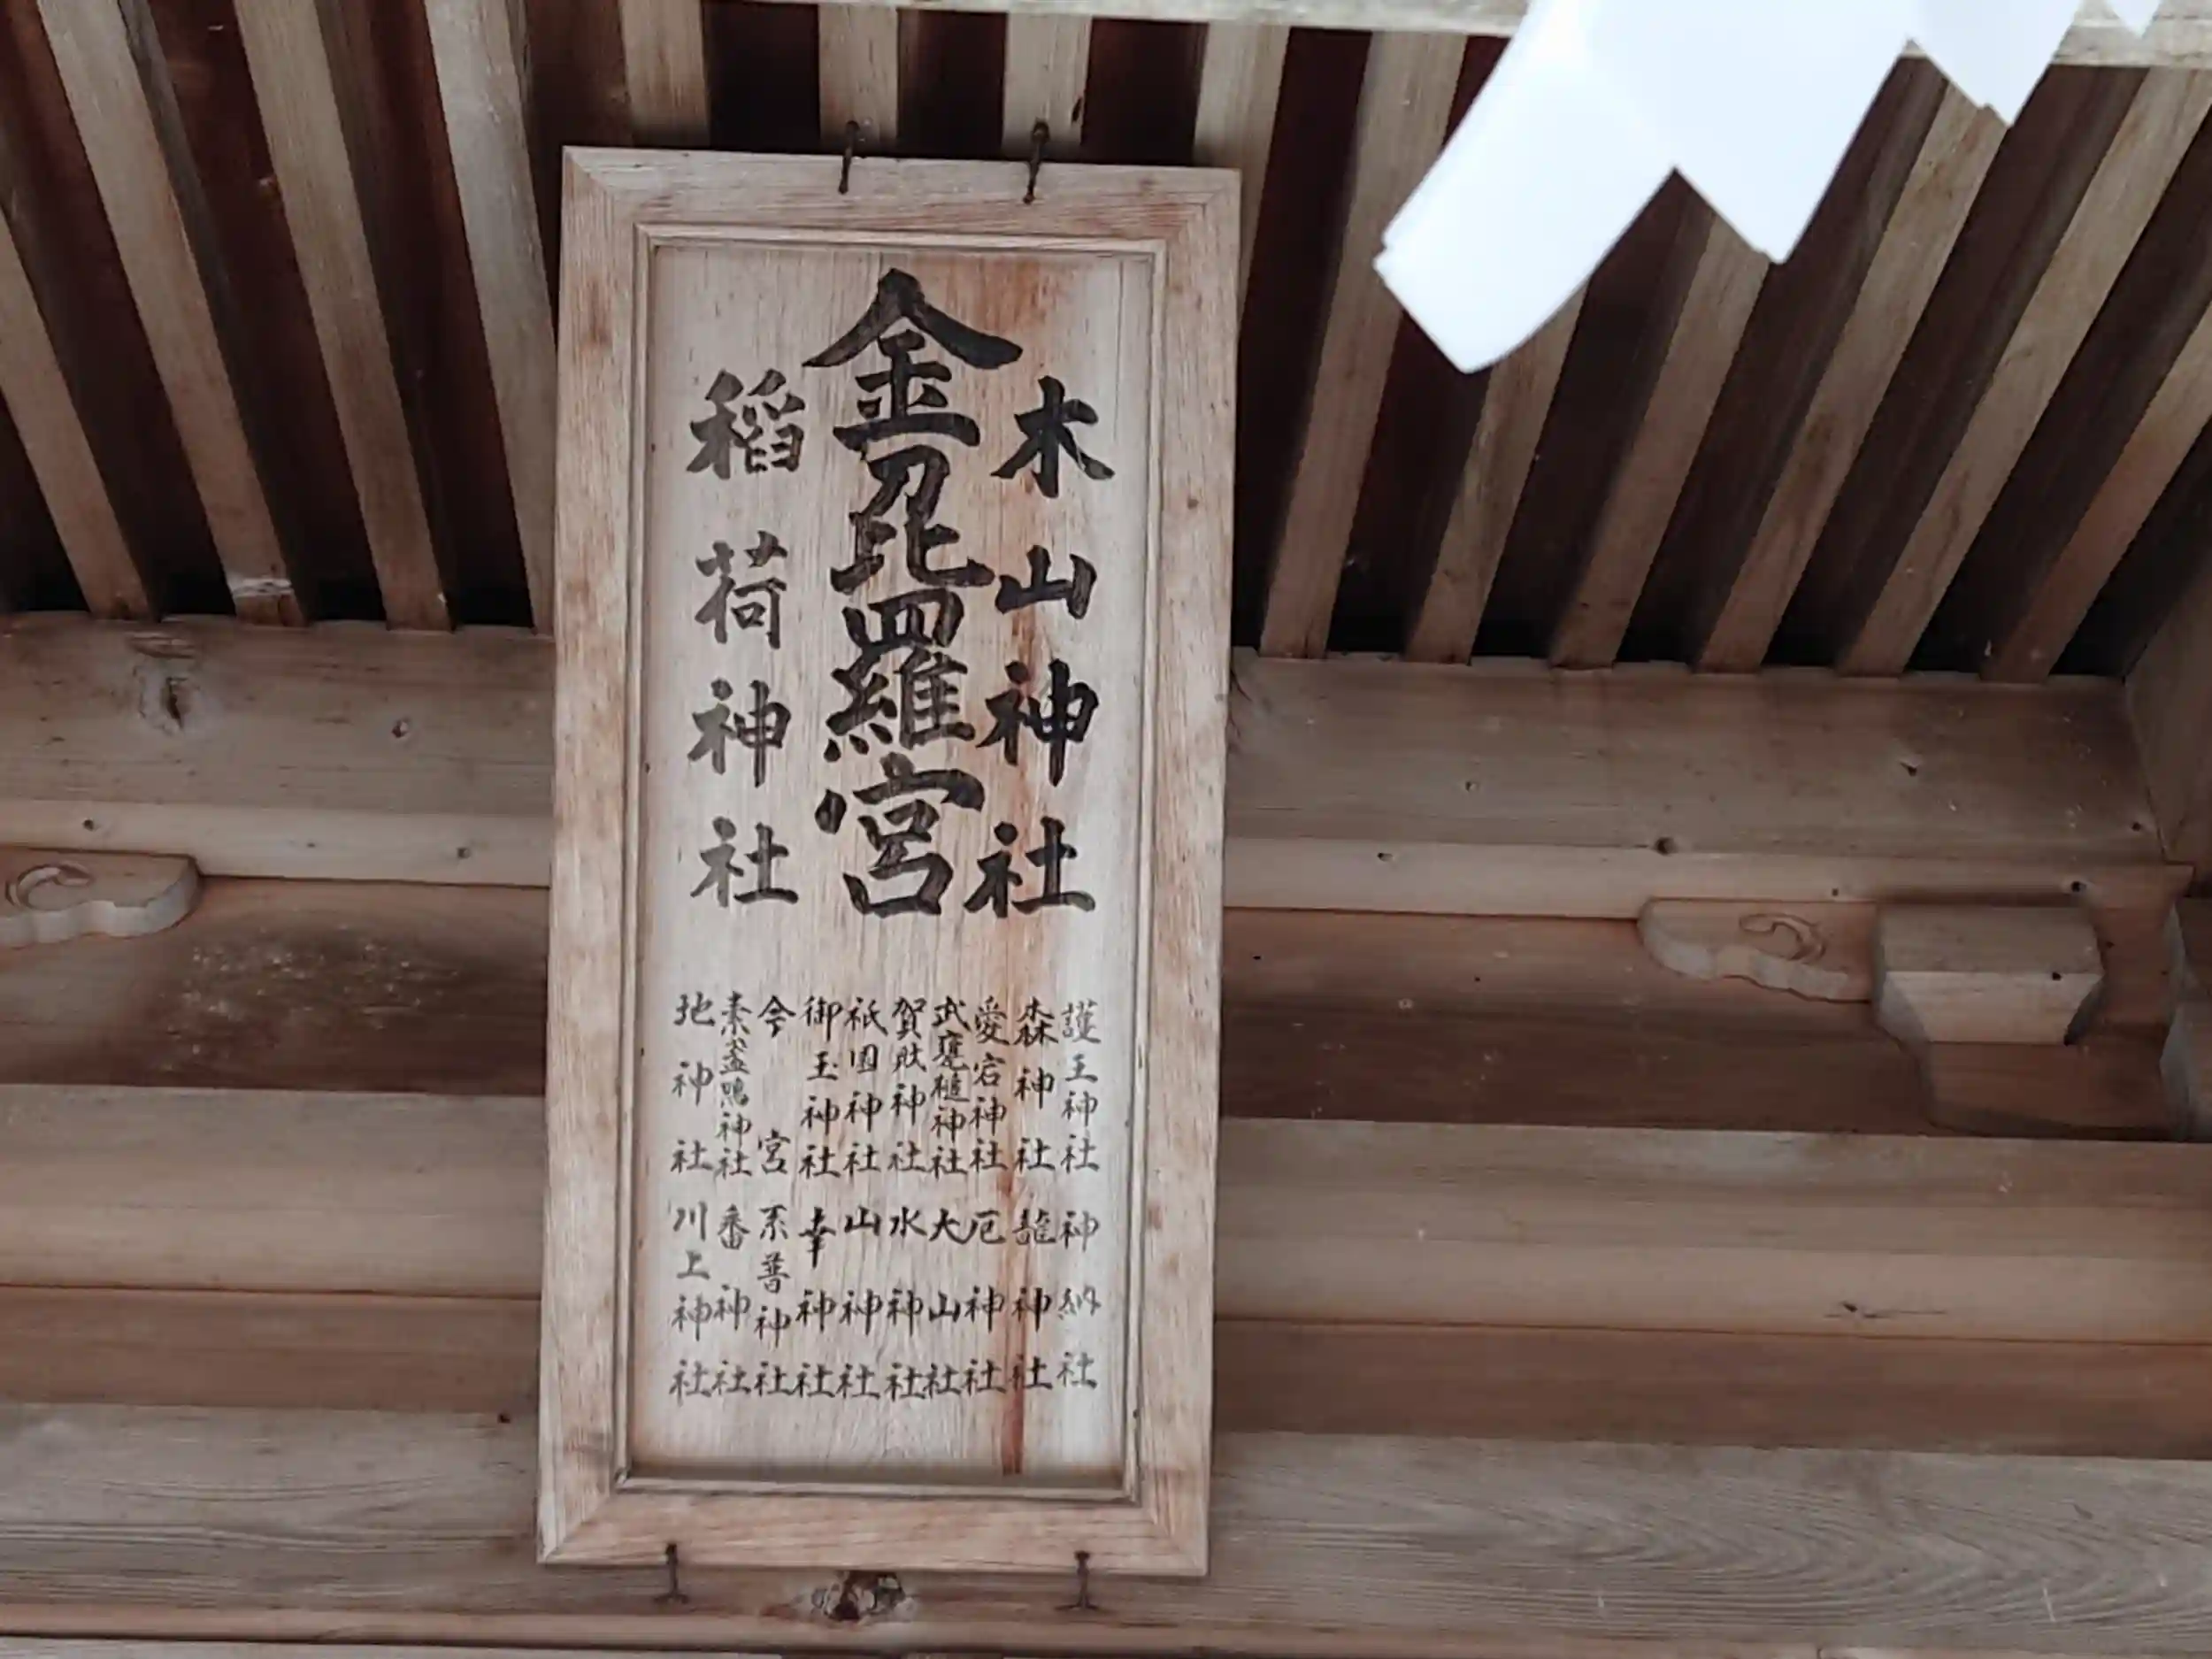 木山神社
金毘羅宮
稲荷神社
護王神社
森神社
愛宕神社
武甕槌神社
賀茂神社
祇園神社
御玉神社
今宮
素盞鳴神社
地神社
神納社
龍神社
厄神社
大山社
水神社
山神社
幸神社
系普神社
番神社
川上神社